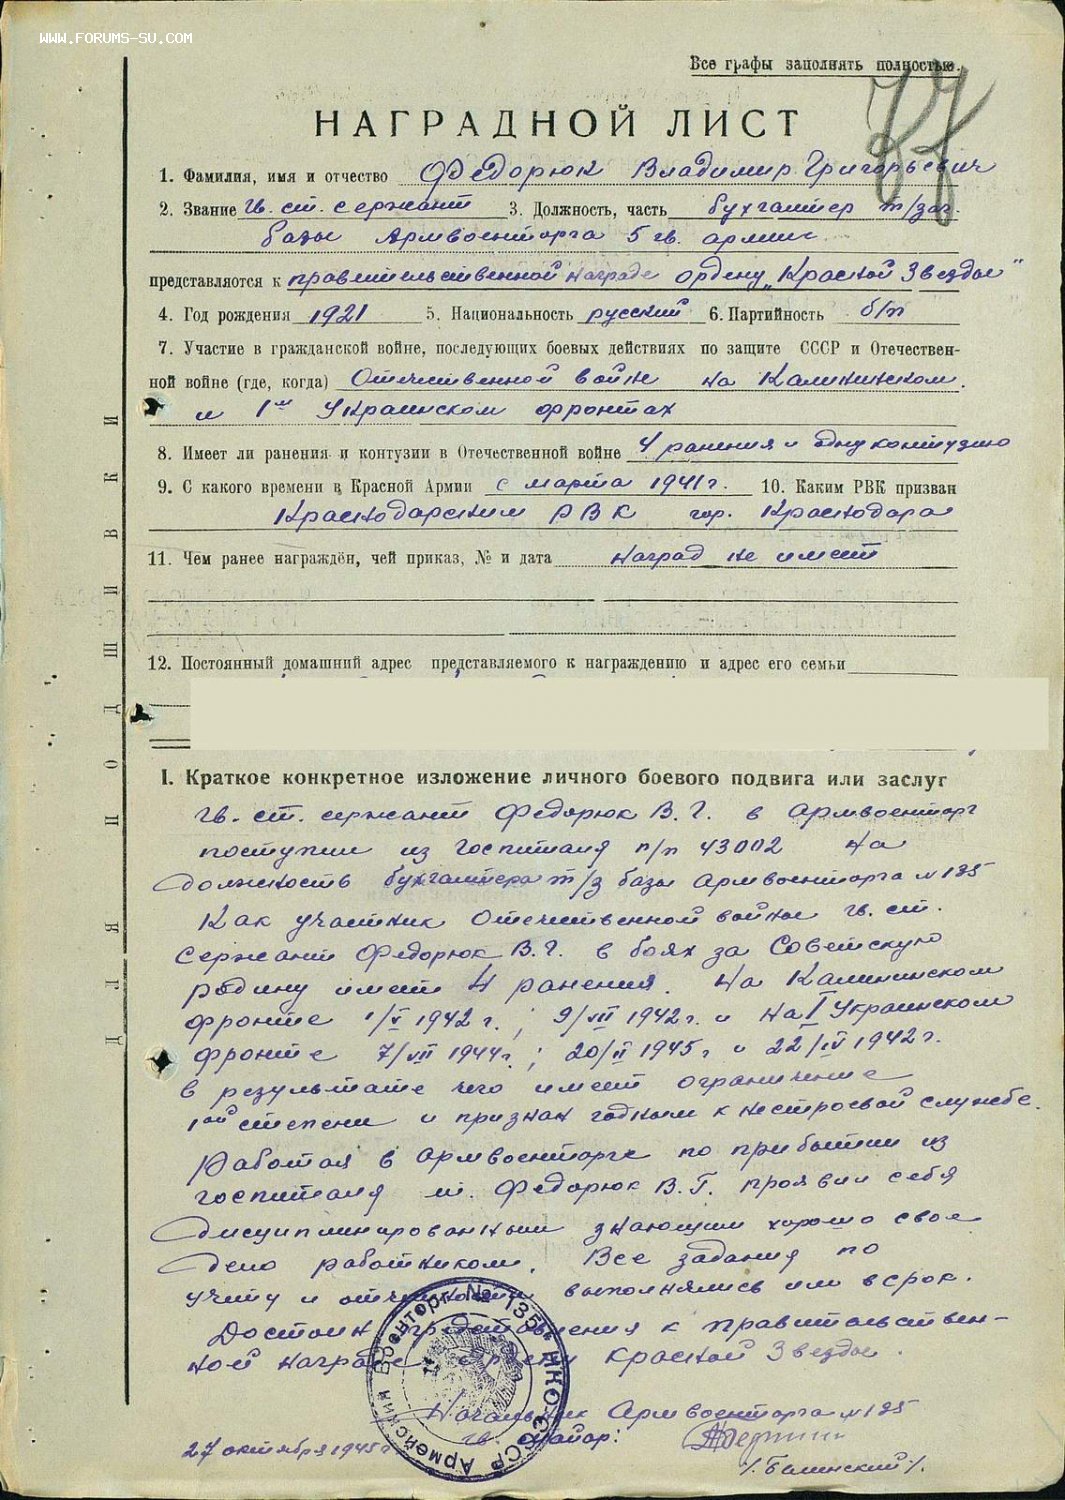 WWW.FORUMS-SU.COM
Все графы заполнять полностью.
НАГРАДНОЙ ЛИСТ
1. Фамилия, имя и отчество Федорюк Владимир Григорьевич
2. Звание гв. ст. сержант 3. Должность, часть бухгалтер т/заг.
базы Армвоенторга 5 гв. армии
представляются к правительственной награде ордену „Красной Звезды"
4. Год рождения 1921 5. Национальность русский 6. Партийность б/п
7. Участие в гражданской войне, последующих боевых действиях по защите СССР и Отечествен-
ной войне (где, когда) Отечественной войне на Калининском
и 1ом Украинском фронтах
8. Имеет ли ранения и контузии в Отечественной войне 4 ранения и одну контузию
9. С какого времени в Красной Армии с марта 1941 г. 10. Каким РВК призван
Краснодарским РВК гор. Краснодара
11. Чем ранее награждён, чей приказ, № и дата наград не имеет
12. Постоянный домашний адрес представляемого к награждению и адрес его семьи
I. Краткое конкретное изложение личного боевого подвига или заслуг
гв. ст. сержант Федорюк В. Г. в Армвоенторг
поступил из госпиталя п/п 43002 на
должность бухгалтера т/з базы Армвоенторга № 135
Как участник Отечественной войны гв. ст.
сержант Федорюк В. Г. в боях за Советскую
родину имеет 4 ранения. На Калининском
фронте 1/V 1942 г.; 9/VII 1942 г. и на I Украинском
фронте 7/VII 1944 г.; 20/II 1945 г и 22/IV 1942 г.
в результате чего имеет ограничение
1ой степени и признан годным к нестроевой службе.
Работая в Армвоенторге по прибытии из
госпиталя т. Федорюк В. Г. проявил себя
дисциплинированным знающим хорошо свое
дело работником. Все задания по
учету и отчетности выполнялись им в срок.
Достоин представления к правительствен-
ной награде ордену Красной Звезды.
Начальник Армвоенторга № 135
гв. майор:
27 октября 1945 г
/Балинский/.
Армейский Военторг № 135 НКО СССР
ДЛЯ ПОДШИВКИ